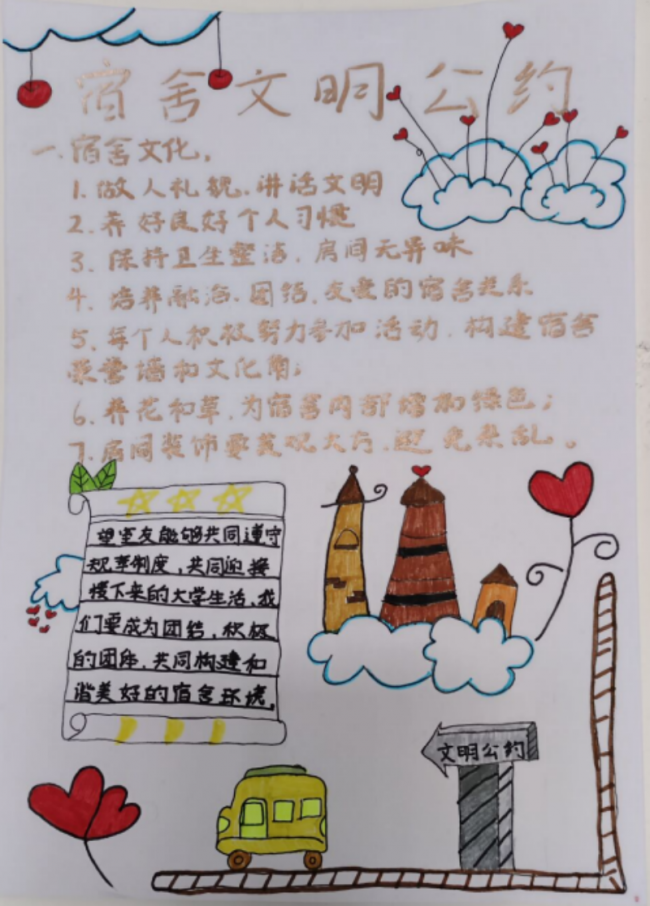 宿舍文明公约
一.宿舍文化.
1.做人礼貌.讲话文明
2.养好良好个人习惯
3.保持卫生整洁.房间无异味
4.培养融洽.团结.友爱的宿舍关系
5.每个人积极努力参加活动.构建宿舍
荣誉墙和文化角;
6.养花和草,为宿舍内部增加绿色;
7.房间装饰要美观大方.避免杂乱。
望室友能够共同遵守
规章制度,共同迎接
接下来的大学生活,我
们要成为团结,积极
的团体.共同构建和
谐美好的宿舍环境.
文明公约